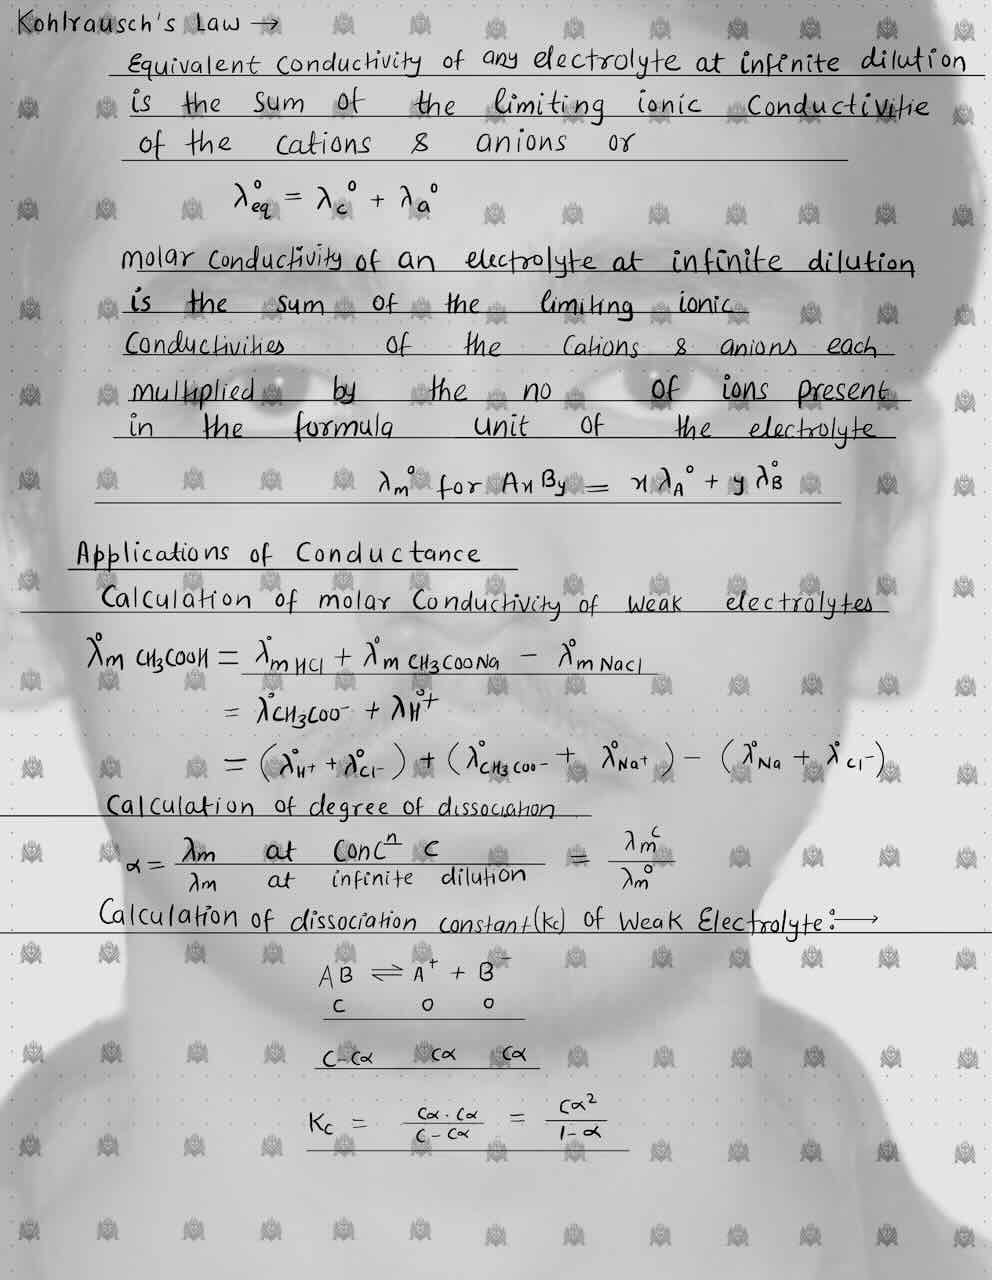 Kohlrausch's Law →
Equivalent Conductivity of any electrolyte at infinite dilution
is the sum of the limiting ionic Conductivitie
of the cations & anions or
λ°eq = λc° + λa°
molar conductivity of an electrolyte at infinite dilution
is the sum of the limiting ionic
Conductivities of the Cations & anions each
multiplied by the no of ions present
in the formula unit of the electrolyte
λm° for Ax By = x λA° + y λ°B
Applications of Conductance
Calculation of molar Conductivity of weak electrolytes
λ°m CH3COOH = λ°m HCl + λ°m CH3COONa - λ°m NaCl
= λ°CH3COO- + λ°H+
= (λ°H+ + λ°Cl-) + (λ°CH3COO- + λ°Na+) - (λ°Na + λ°Cl-)
Calculation of degree of dissociation
α = λm at Concn C / λm at infinite dilution = λm^c / λm°
Calculation of dissociation constant(Kc) of Weak Electrolyte:→
AB ⇌ A+ + B-
C 0 0
C-Cα Cα Cα
Kc = Cα . Cα / C - Cα = Cα² / 1-α